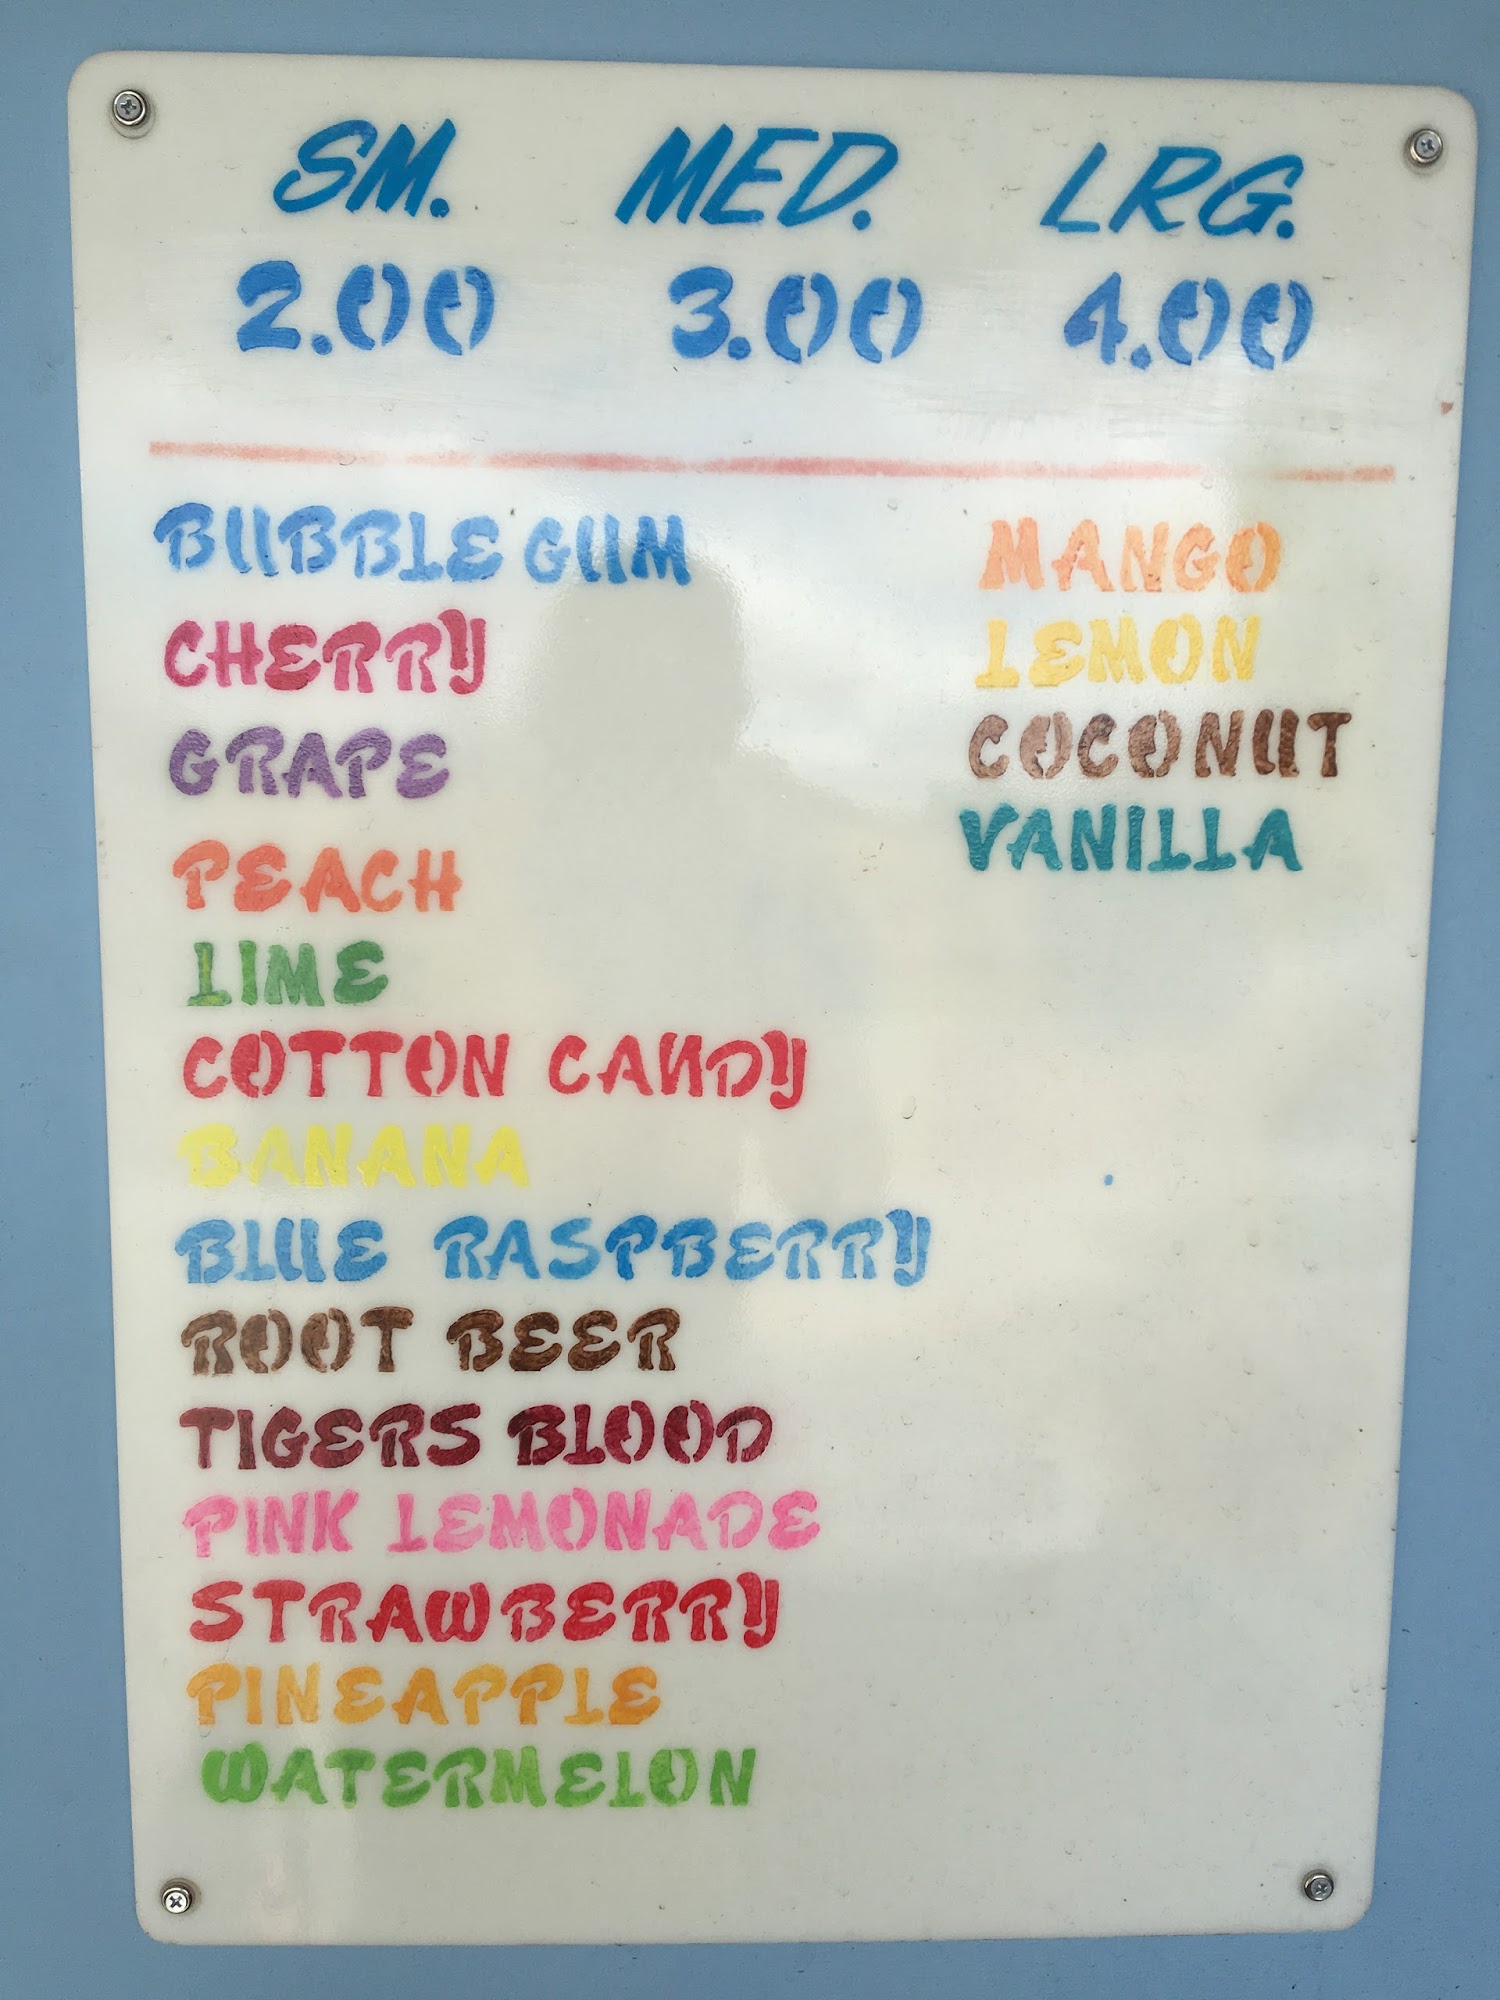 SM. MED. LRG.
2.00 3.00 4.00
BUBBLE GUM
CHERRY
GRAPE
PEACH
LIME
COTTON CANDY
BANANA
BLUE RASPBERRY
ROOT BEER
TIGERS BLOOD
PINK LEMONADE
STRAWBERRY
PINEAPPLE
WATERMELON
MANGO
LEMON
COCONUT
VANILLA